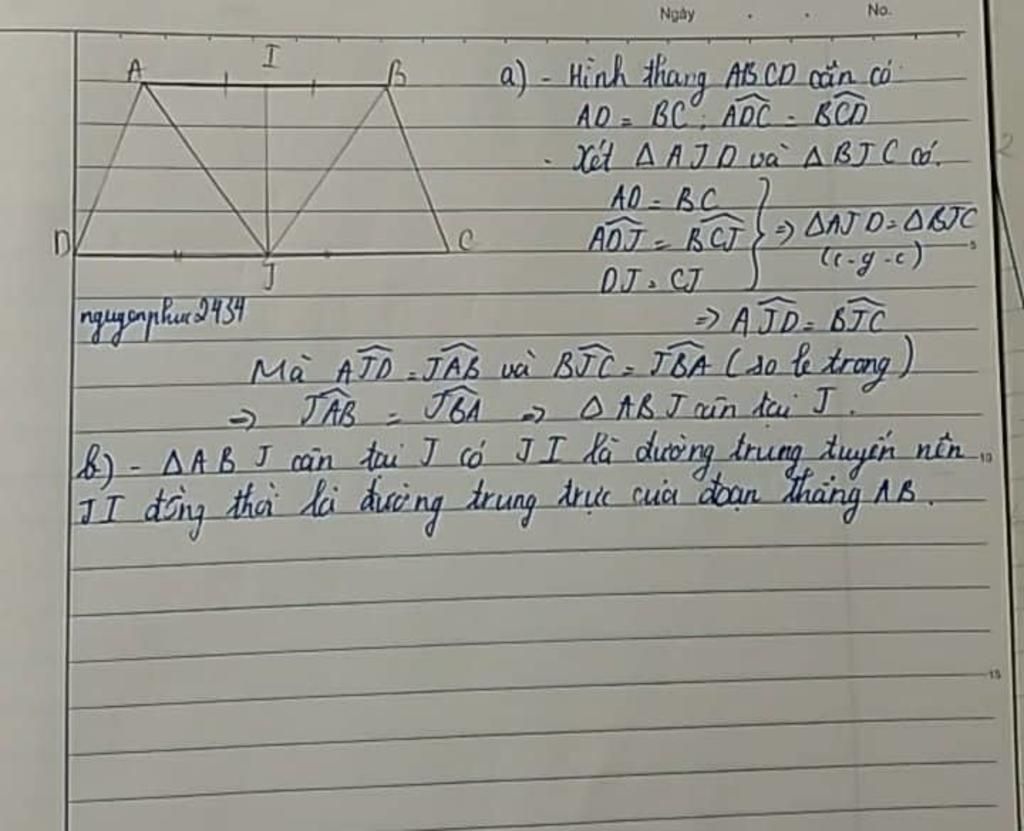 Ngày . . No.
A I B
D J C
a) - Hình thang ABCD cân có
AD = BC ; ADC = BCD
- Xét ΔAJD và ΔBJC có.
AD = BC
ADJ = BCJ } => ΔAJD = ΔBJC
DJ = CJ (c-g-c)
5
nguyenphuc2434
=> AJD = BJC
Mà AJD = JAB và BJC = JBA (so le trong)
=> JAB = JBA => ΔABJ cân tại J.
b) - ΔABJ cân tại J có JI là đường trung tuyến nên
10
JI đồng thời là đường trung trực của đoạn thẳng AB.
15